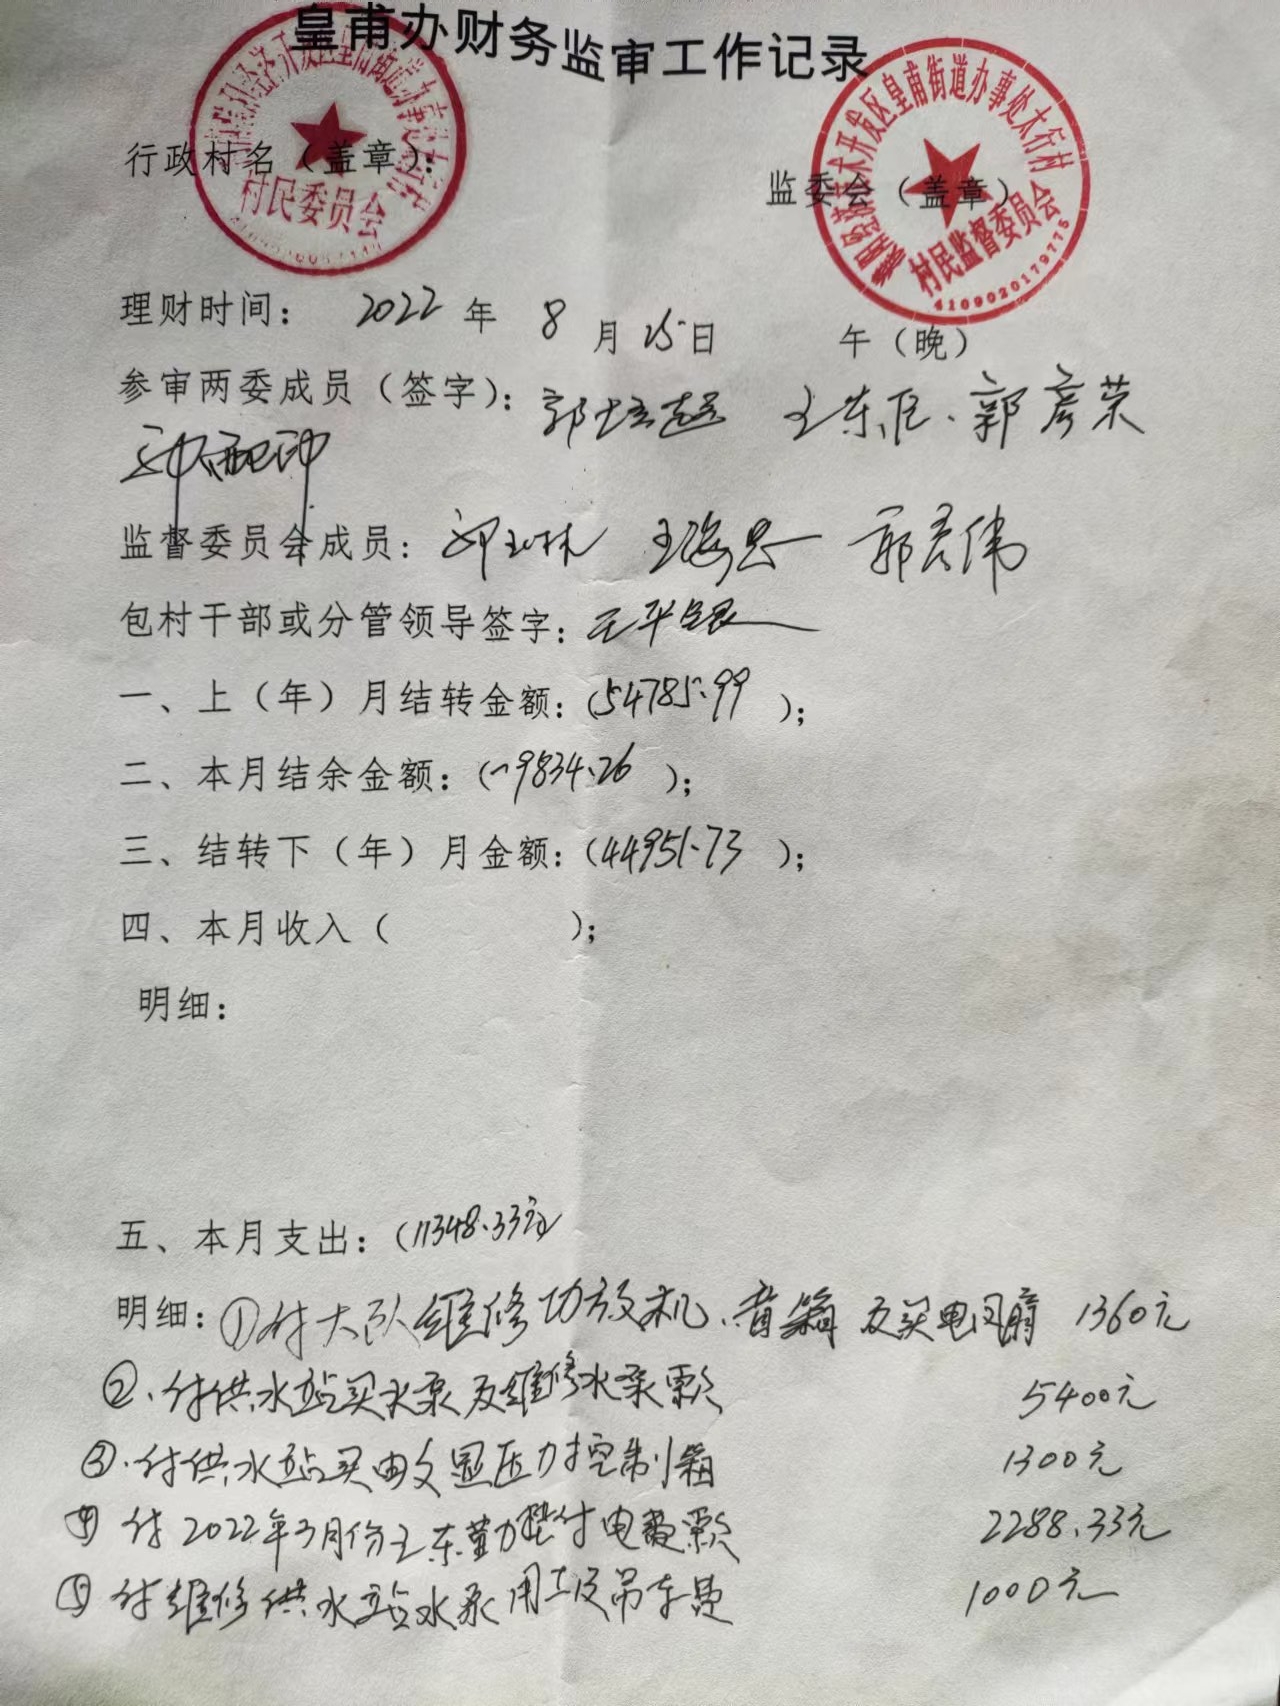 皇甫办财务监审工作记录
行政村名（盖章）：
村民委员会
监委会（盖章）
开发区皇甫街道办事处太行村
村民监督委员会
4109020179775
理财时间： 2022 年 8 月 25日 午（晚）
参审两委成员（签字）： 郭 王东 郭彦荣
监督委员会成员： 王海忠 郭 伟
包村干部或分管领导签字：
一、上（年）月结转金额：（54785.99 ）；
二、本月结余金额：（-9834.26 ）；
三、结转下（年）月金额：（44951.73 ）；
四、本月收入（ ）；
明细：
五、本月支出：（11348.33元）
明细：①付大队维修功放机、音箱及买电风扇 1360元
②、付供水站买水泵及维修水泵款 5400元
③、付供水站买 显压力控制箱 1300元
④ 付2022年3月份王东 垫付电费款 2288.33元
⑤ 付维修供水站水泵用工及吊车费 1000元